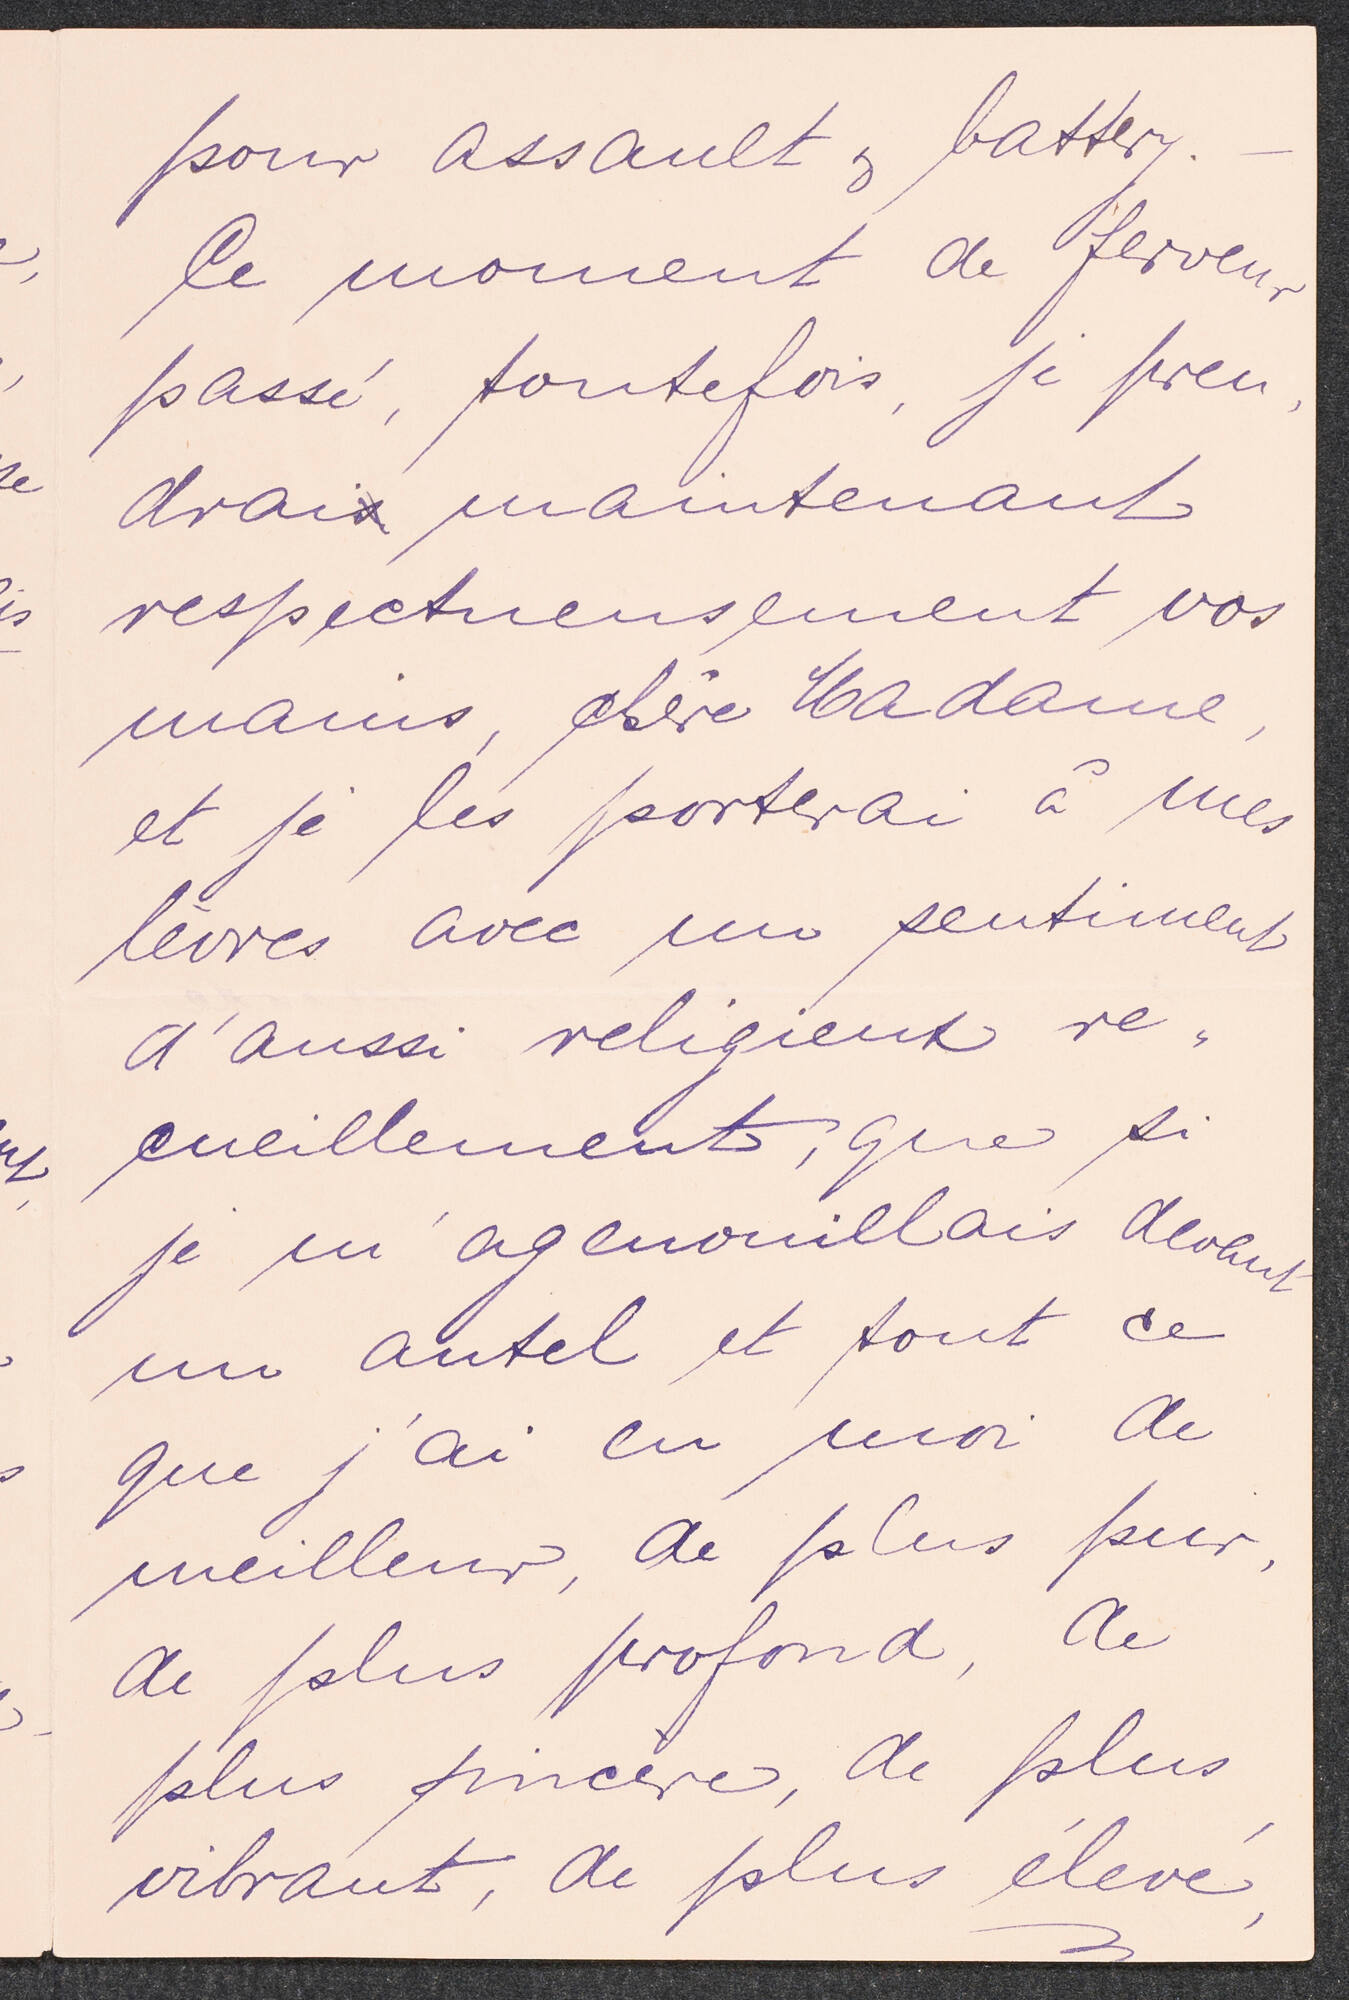 pour assault & battery. —
Ce moment de ferveur
passé, toutefois, je pren,
drai maintenant
respectueusement vos
mains, chère Madame,
et je les porterai à mes
lèvres avec un sentiment
d'aussi religieux re„
cueillement, que si
je m'agenouillais devant
un autel et tout ce
que j'ai en moi de
meilleur, de plus pur,
de plus profond, de
plus sincère, de plus
vibrant, de plus élevé,